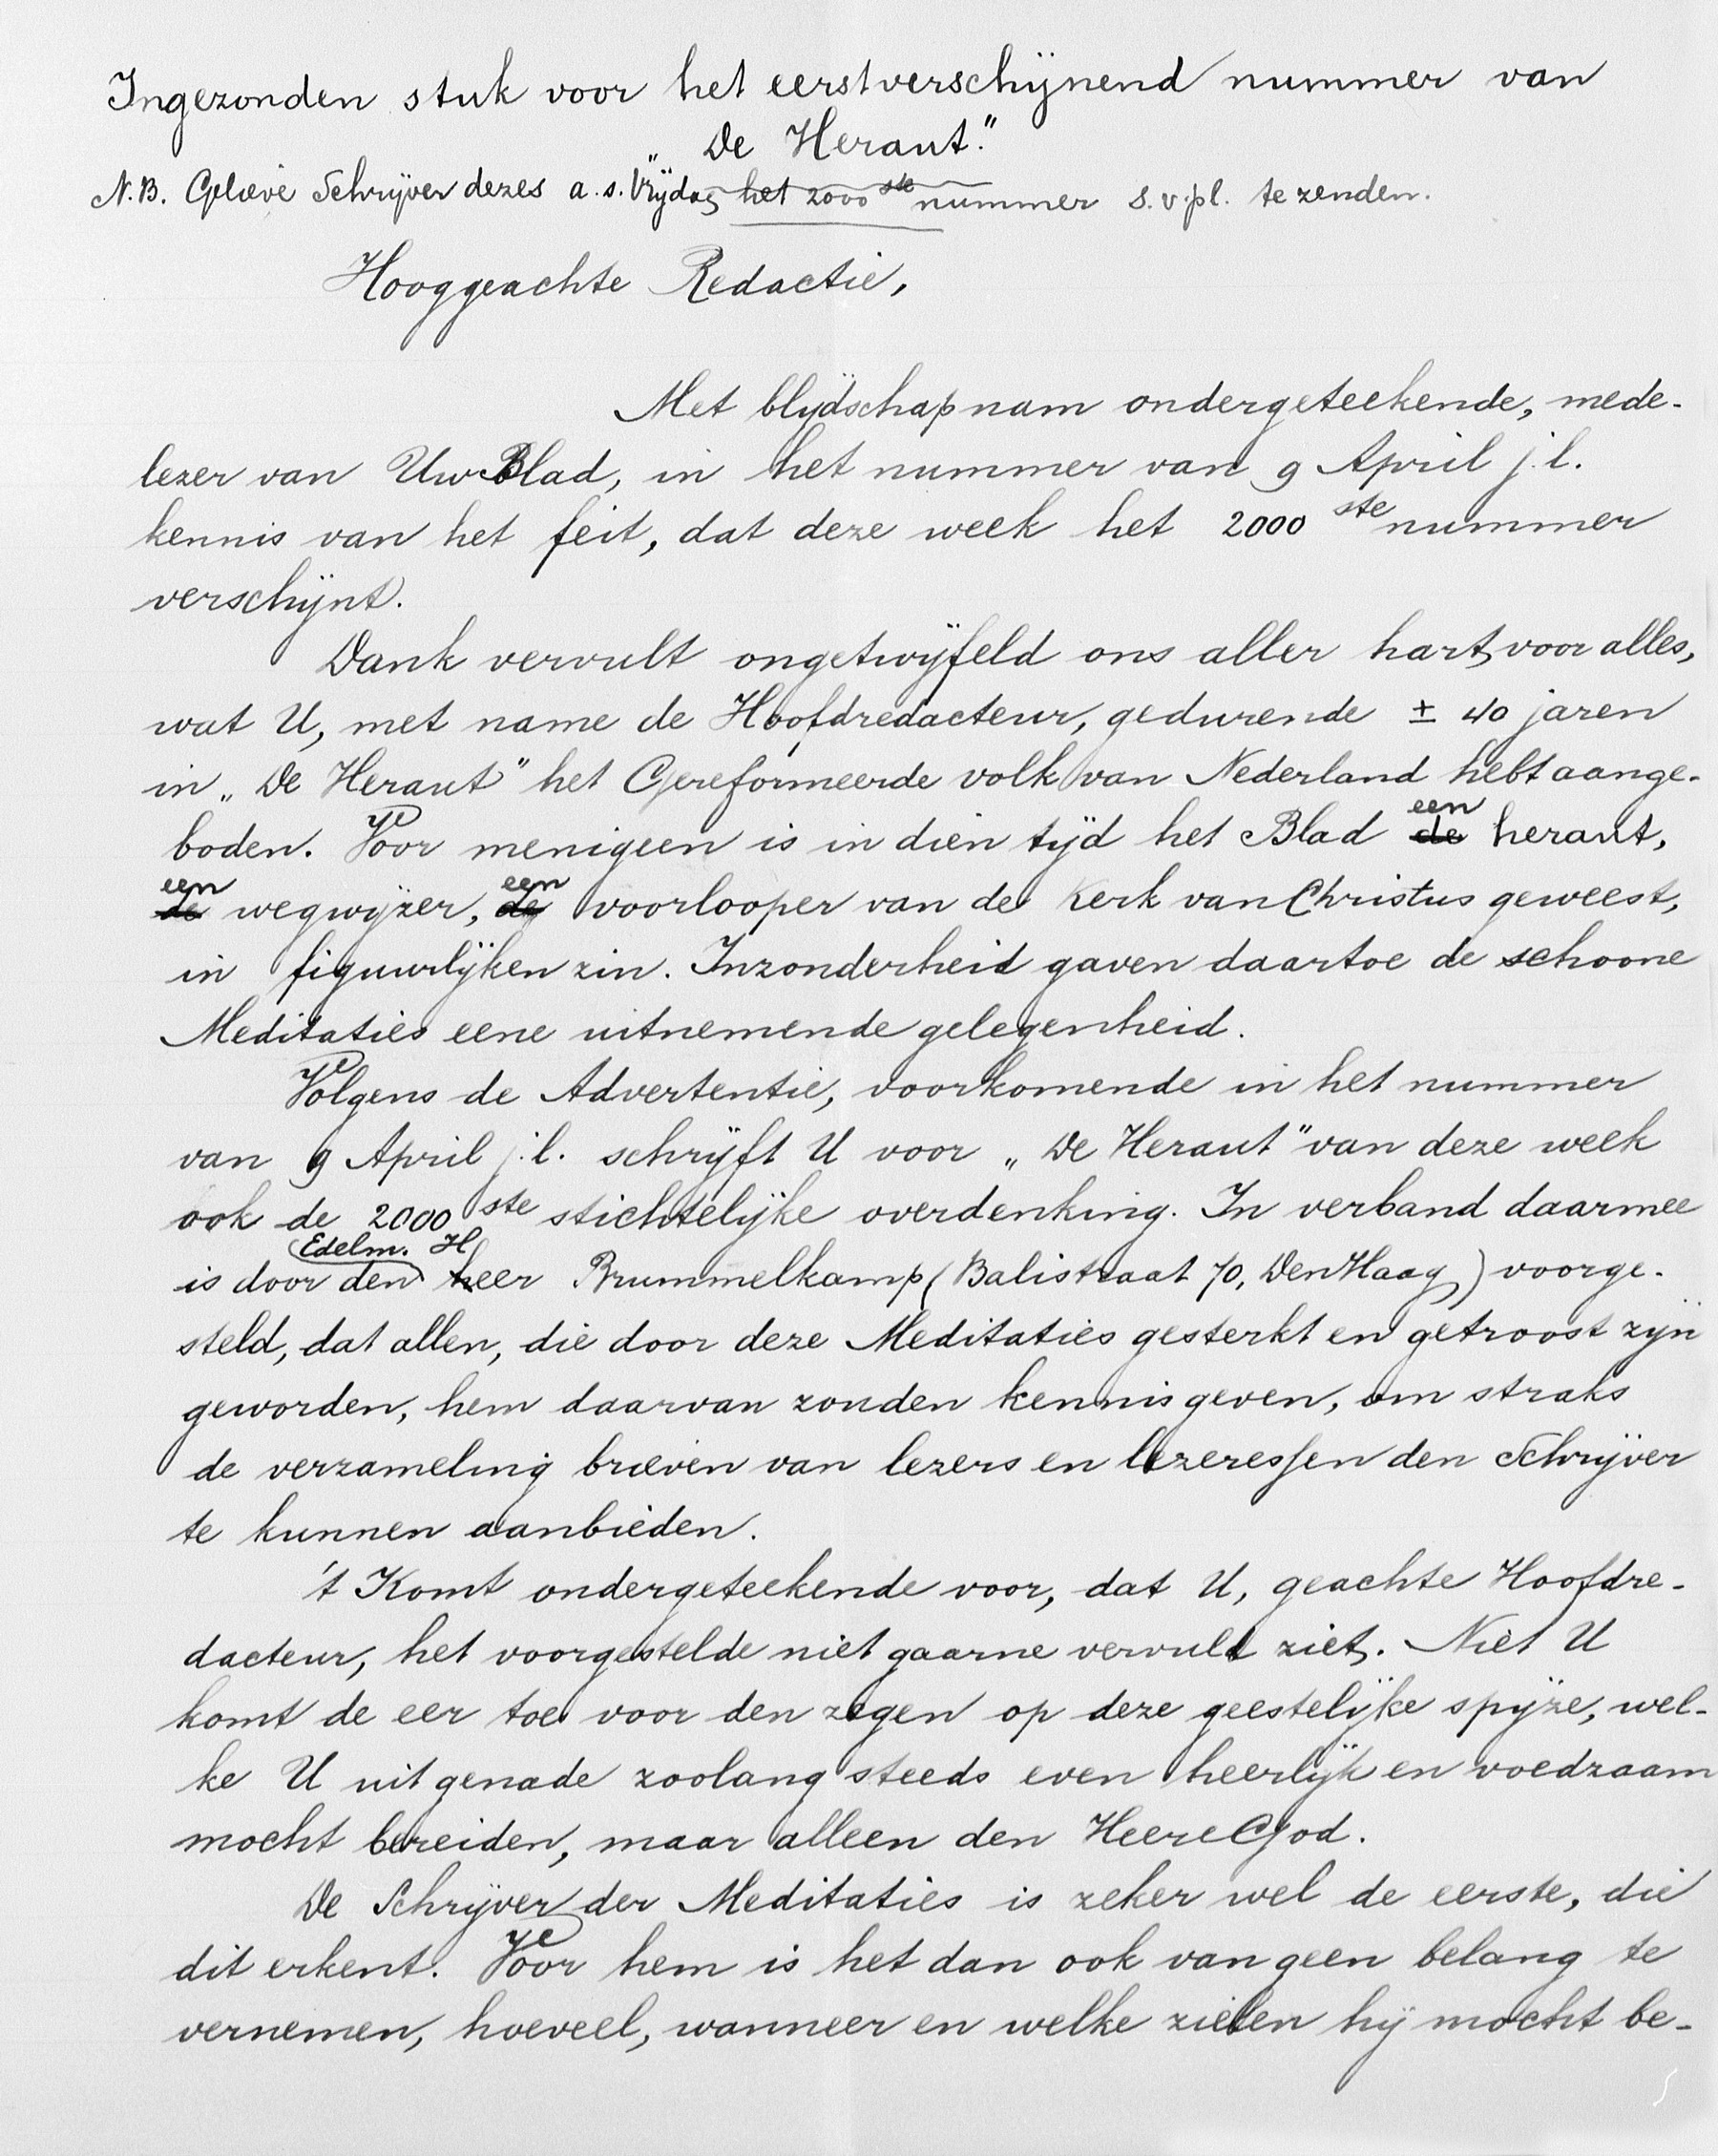 Ingezonden stuk voor het eerstverschijnend nummer van
„De Heraut."
N.B. Gelieve Schrijver dezes a.s. Vrijdag het 2000ste nummer s.v.pl. te zenden.
Hooggeachte Redactie,
Met blijdschap nam ondergeteekende, mede-
lezer van Uw Blad, in het nummer van 9 April j.l.
kennis van het feit, dat deze week het 2000ste nummer
verschijnt.
Dank vervult ongetwijfeld ons aller hart voor alles,
wat U, met name de Hoofdredacteur, gedurende ± 40 jaren
in „De Heraut" het Gereformeerde volk van Nederland hebt aange-
boden. Voor menigeen is in dien tijd het Blad een heraut,
een wegwijzer, een voorlooper van de Kerk van Christus geweest,
in figuurlijken zin. Inzonderheid gaven daartoe de schoone
Meditaties eene uitnemende gelegenheid.
Volgens de Advertentie, voorkomende in het nummer
van 9 April j.l. schrijft U voor „De Heraut" van deze week
ook de 2000ste stichtelijke overdenking. In verband daarmee
is door den Edelm. Heer Brummelkamp (Balistraat 70, Den Haag) voorge-
steld, dat allen, die door deze Meditaties gesterkt en getroost zijn
geworden, hem daarvan zouden kennis geven, om straks
de verzameling brieven van lezers en lezeressen den Schrijver
te kunnen aanbieden.
't Komt ondergeteekende voor, dat U, geachte Hoofdre-
dacteur, het voorgestelde niet gaarne vervuld ziet. Niet U
komt de eer toe voor den zegen op deze geestelijke spijze, wel-
ke U uit genade zoolang steeds even heerlijk en voedzaam
mocht bereiden, maar alleen den Heere God.
De Schrijver der Meditaties is zeker wel de eerste, die
dit erkent. Voor hem is het dan ook van geen belang te
vernemen, hoeveel, wanneer en welke zielen hij mocht be-